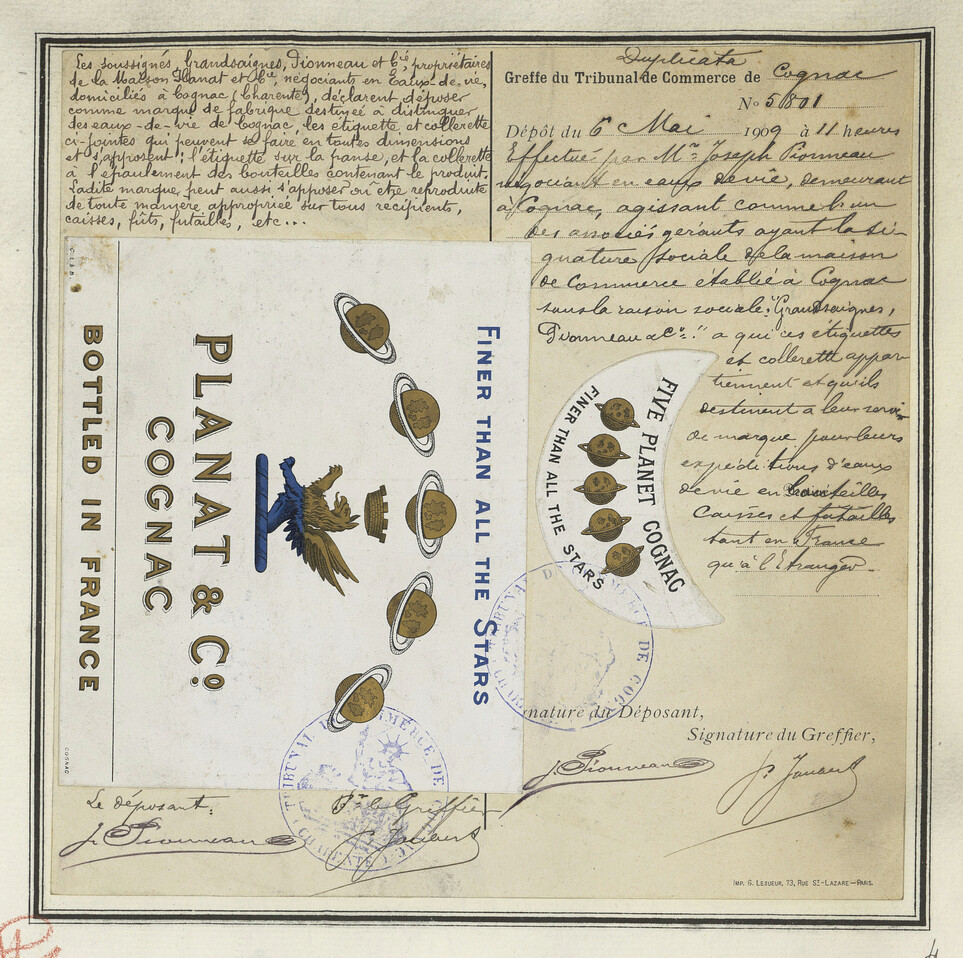 Les soussignés, Grandsaignes, Pionneau et Cie, propriétaires
de la Maison Planat et Cie, négociants en Eaux-de-vie,
domiciliés à Cognac (Charente), déclarent déposer
comme marque de fabrique destinée à distinguer
des eaux-de-vie de Cognac, les étiquette et collerette
ci-jointes qui peuvent se faire en toutes dimensions
et s'apposent: l'étiquette sur la panse, et la collerette
à l'épaulement des bouteilles contenant le produit.
Ladite marque peut aussi s'apposer ou être reproduite
de toute manière appropriée sur tous récipients,
caisses, fûts, futailles, etc...
Duplicata
Greffe du Tribunal de Commerce de Cognac
No 5801
Dépôt du 6 Mai 1909 à 11 heures
Effectué par Mr Joseph Pionneau
négociant en eaux de vie, demeurant
à Cognac, agissant comme l'un
des associés gérants ayant la si-
gnature sociale de la maison
de commerce établie à Cognac
sous la raison sociale: "Grandsaignes,
Pionneau & Co." a qui ces étiquettes
et collerette appar-
tiennent et qu'ils
destinent à leur servir
de marque pour leurs
expéditions d'eaux
de vie en bouteilles
Caisses et futailles
tant en France
qu'à l'étranger.
FINER THAN ALL THE STARS
PLANAT & Co
COGNAC
BOTTLED IN FRANCE
COGNAC
FIVE PLANET COGNAC
FINER THAN ALL THE STARS
TRIBUNAL DE COMMERCE DE COGNAC
(CHARENTE)
TRIBUNAL DE COMMERCE DE COGNAC
(CHARENTE)
Signature du Déposant,
Signature du Greffier,
J. Pionneau
Le déposant:
Pr le Greffier
J. Pionneau
IMP. G. LESUEUR, 73, RUE ST-LAZARE—PARIS.
4